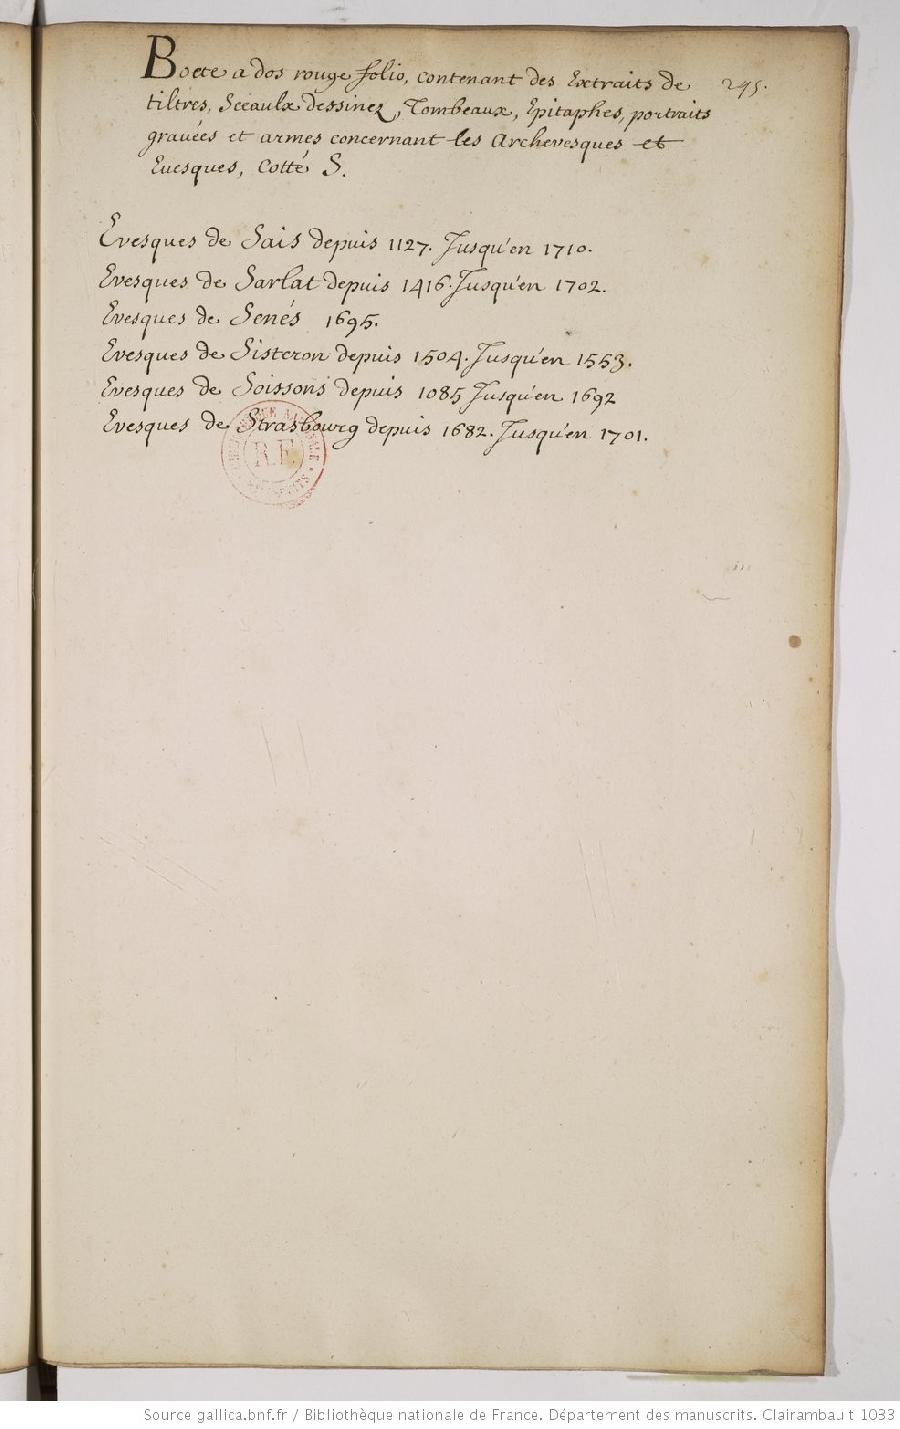 Boete a dos rouge folio, contenant des Extraits de 245.
tiltres, Sceaulx dessinez, Tombeaux, Epitaphes, portraits
gravées et armes concernant les Archevesques et
Evesques, Cotté S.
Evesques de Sais depuis 1127. Jusqu'en 1710.
Evesques de Sarlat depuis 1416. Jusqu'en 1702.
Evesques de Senés 1695.
Evesques de Sisteron depuis 1504. Jusqu'en 1553.
Evesques de Soissons depuis 1085 Jusqu'en 1692
Evesques de Strasbourg depuis 1682. Jusqu'en 1701.
R.F.
Source gallica.bnf.fr / Bibliothèque nationale de France. Département des manuscrits. Clairambault 1033